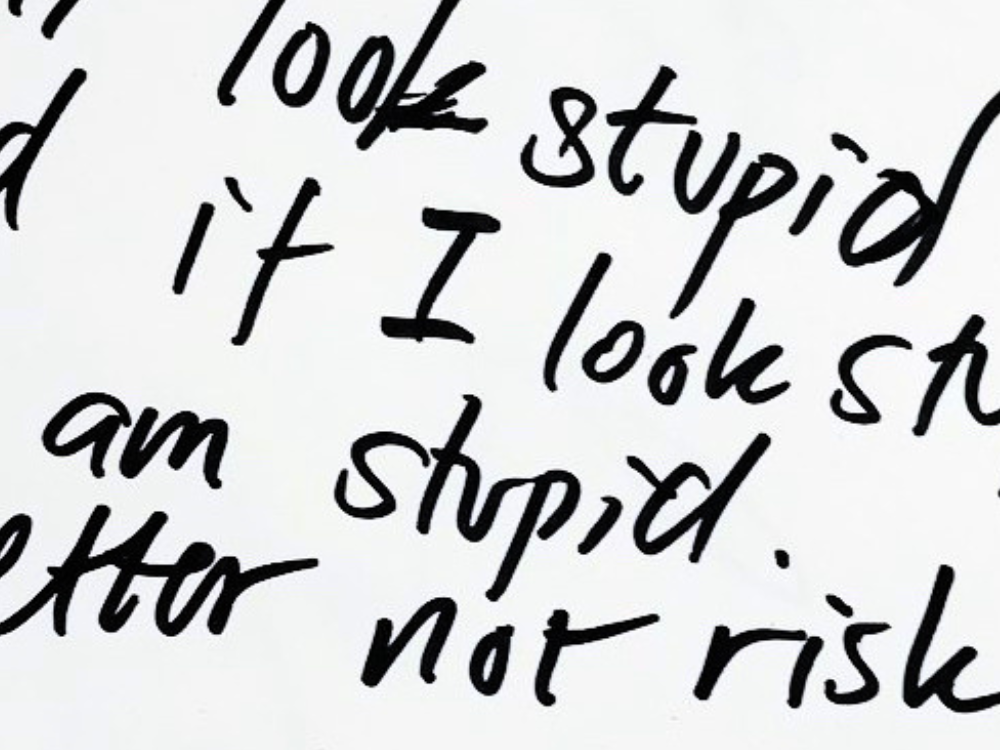 look stupid
if I look stu
am stupid.
etter not risk